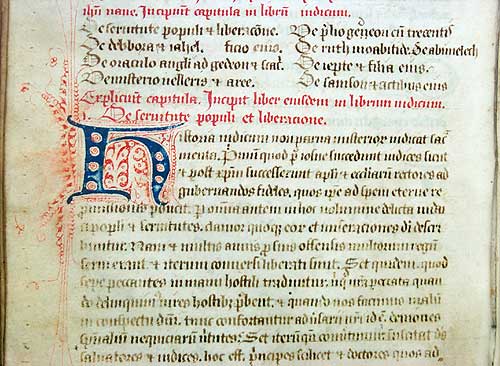 ihu nave. Incipiunt capitula in librum iudicum.
De seruitute populi & liberacione. De prelio gedeon cu trecentis
De debbora & iahel. De ruth moabitide. De abimelech
De oraculo angli ad gedeon & De iepte & filia eius.
De misterio uelleris & aree. De samson & actibus eius
Expliciunt capitula. Incipit liber eiusdem in librum iudicum.
De seruitute populi et liberacione.
Historia iudicum non parua misterior indicat sac
menta. Primum quod p iosue succedunt iudices sunt
& post xpm successerunt apsi & ecclarum rectores ad
gubernandos fideles, quos ipe ad spem eterne re
promissionis Per omnia autem in hoc uolumine delicta
populi & seruitutes, clamor quoque eor et miseraciones di descri
buntur. Nam & multis annis p suis offensis multorum regum
& iterum conuersi liberati sunt. Et quidem quod
sepe peccantes in manu hostili traduntur, nra peccata quando
delinquim uires hostibus prbent, & quando nos facimus malum
in conspectu dni, tunc confortantur aduersarii id e demones
spualium nequiciarum uirtutes. Et iterum suscitat ds
saluatores & iudices, hoc est principes scilicet & doctores quos ad